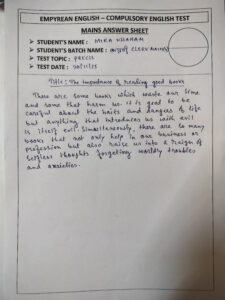 EMPYREAN ENGLISH – COMPULSORY ENGLISH TEST
MAINS ANSWER SHEET
➤ STUDENT'S NAME : MIRA
➤ STUDENT'S BATCH NAME :
➤ TEST TOPIC : PRECIS
➤ TEST DATE :
Title : The importance of reading good books
There are some books which waste our time
and some that harm us. It is good to be
careful about the baits and dangers of life
but anything that introduces us with evil
is itself evil. Simultaneously, there are so many
books that not only help in our business or
profession but also raise us into a reign of
selfless thoughts forgetting worldly troubles
and anxieties.